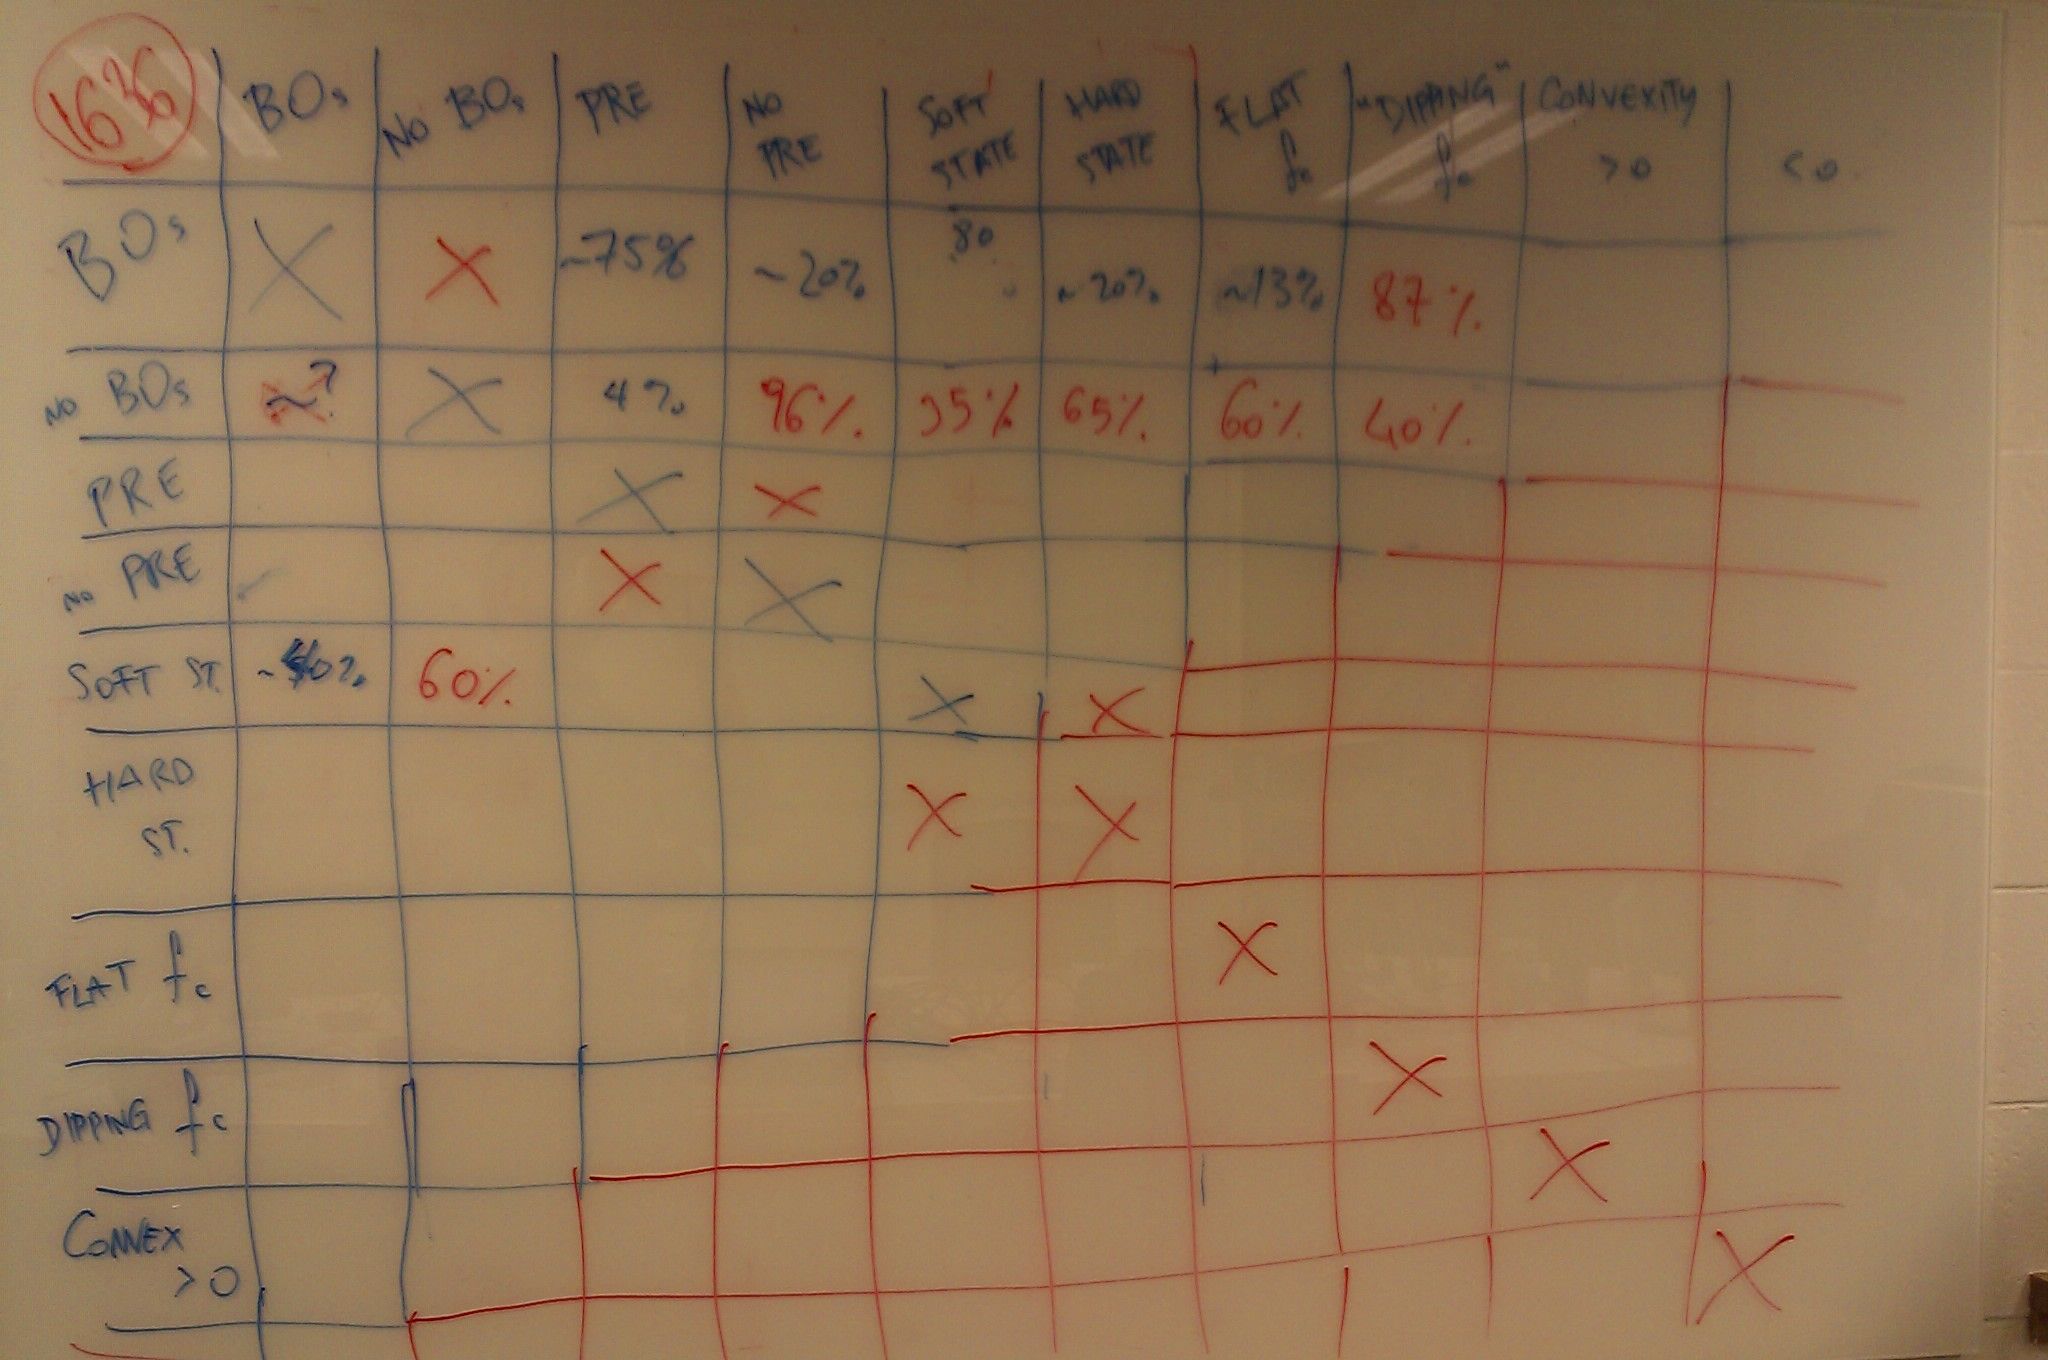 1636 BOs No BOs PRE NO PRE SOFT STATE HARD STATE FLAT fc "DIPPING" fc CONVEXITY >0 <0
BOs X X ~75% ~20% 80 ~20% ~13% 87%
NO BOs ? X 4% 96% 35% 65% 60% 40%
PRE X X
NO PRE X X
SOFT ST. 60% X X
HARD ST. X X
FLAT fc X
DIPPING fc X
X
CONVEX >0 X